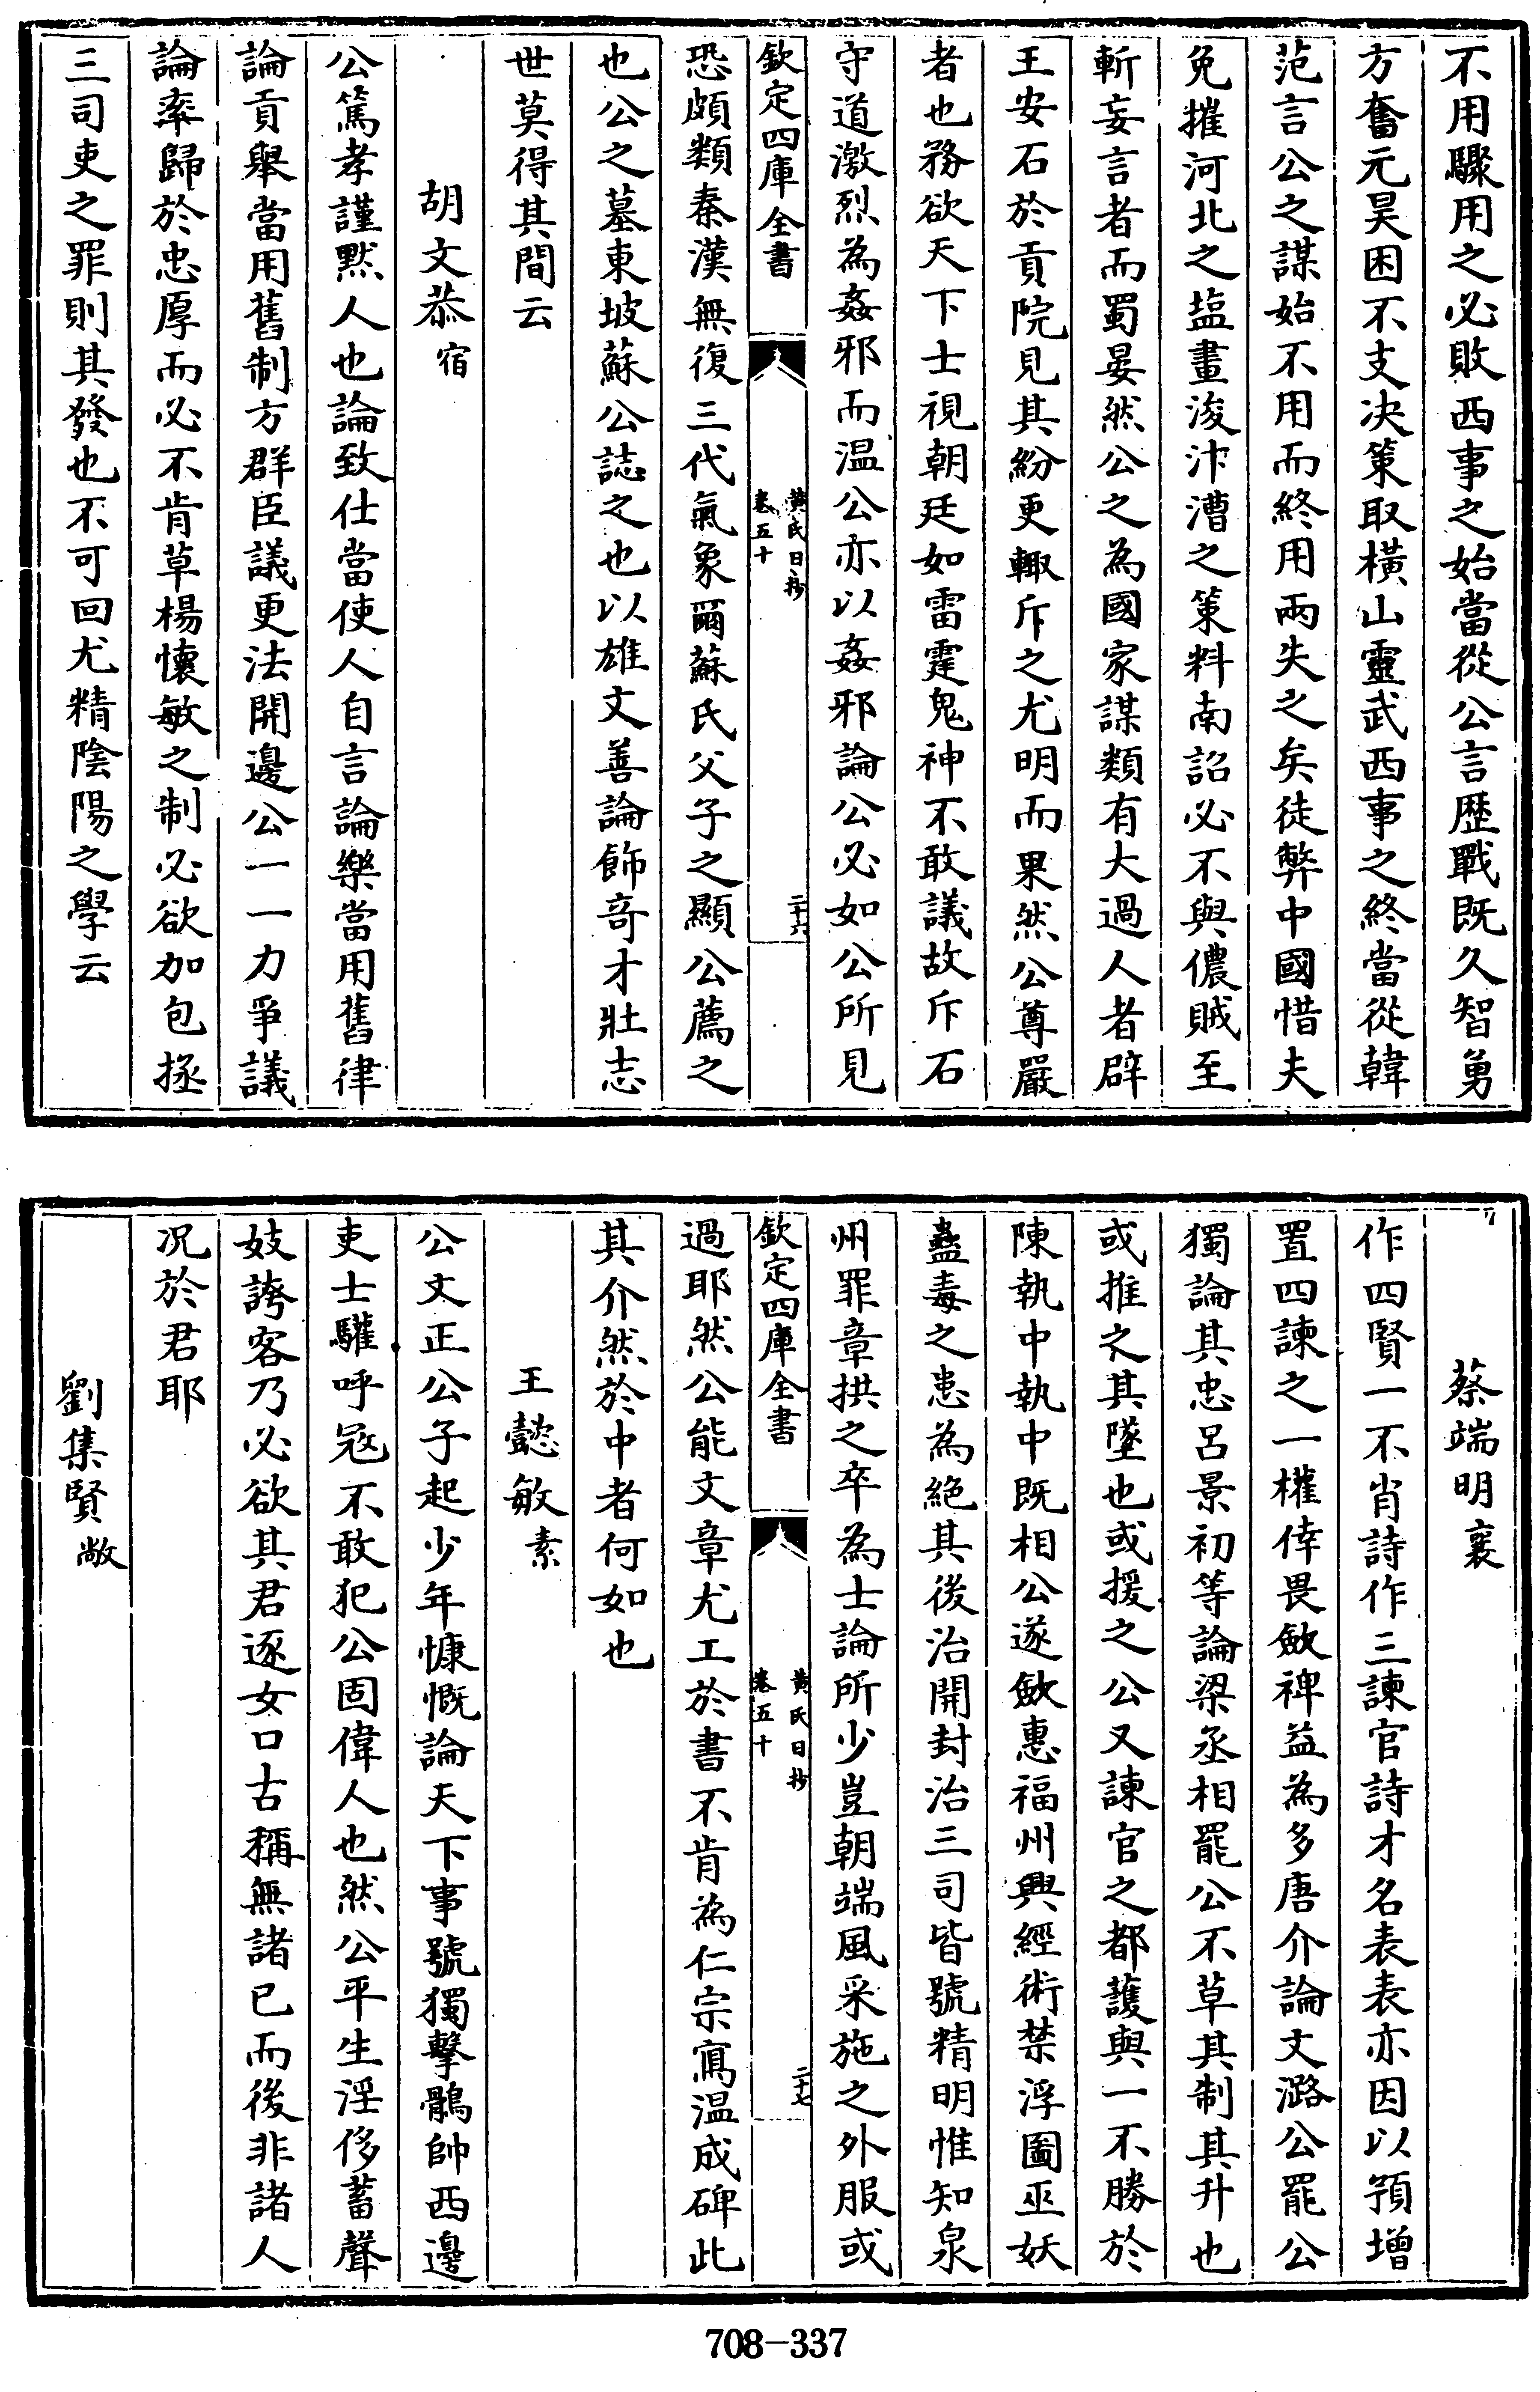 不用驟用之必敗西事之始當從公言歴戰既久智勇
方奮元昊困不支决策取橫山靈武西事之終當從韓
范言公之謀始不用而終用兩失之矣徒弊中國惜夫
免摧河北之塩畫浚汴漕之策料南詔必不與儂賊至
斬妄言者而蜀晏然公之為國家謀類有大過人者辟
王安石於貢院見其紛更輙斥之尤明而果然公尊嚴
者也務欲天下士視朝廷如雷霆鬼神不敢議故斥石
守道激烈為姦邪而温公亦以姦邪論公必如公所見
欽定四庫全書
黄氏日抄
卷五十
二十六
恐頗類秦漢無復三代氣象爾蘇氏父子之顯公薦之
也公之墓東坡蘇公誌之也以雄文善論飾竒才壯志
世莫得其間云
胡文恭宿
公篤孝謹黙人也論致仕當使人自言論樂當用舊律
論貢舉當用舊制方群臣議更法開邊公一一力爭議
論率歸於忠厚而必不肯草楊懷敏之制必欲加包拯
三司吏之罪則其發也不可回尤精陰陽之學云
蔡端明襄
作四賢一不肖詩作三諫官詩才名表表亦因以預增
置四諫之一權倖畏斂禆益為多唐介論文潞公罷公
獨論其忠呂景初等論梁丞相罷公不草其制其升也
或推之其墜也或援之公又諫官之都䕶與一不勝於
陳執中執中既相公遂斂惠福州興經術禁浮圖巫妖
蠱毒之患為絶其後治開封治三司皆號精明惟知泉
州罪章拱之卒為士論所少豈朝端風采施之外服或
欽定四庫全書
黄氏日抄
卷五十
二十七
過耶然公能文章尤工於書不肯為仁宗寫温成碑此
其介然於中者何如也
王懿敏素
公文正公子起少年慷慨論天下事號獨擊鶻帥西邊
吏士驩呼冦不敢犯公固偉人也然公平生淫侈蓄聲
妓誇客乃必欲其君逐女口古稱無諸已而後非諸人
况於君耶
劉集賢敞
708-337